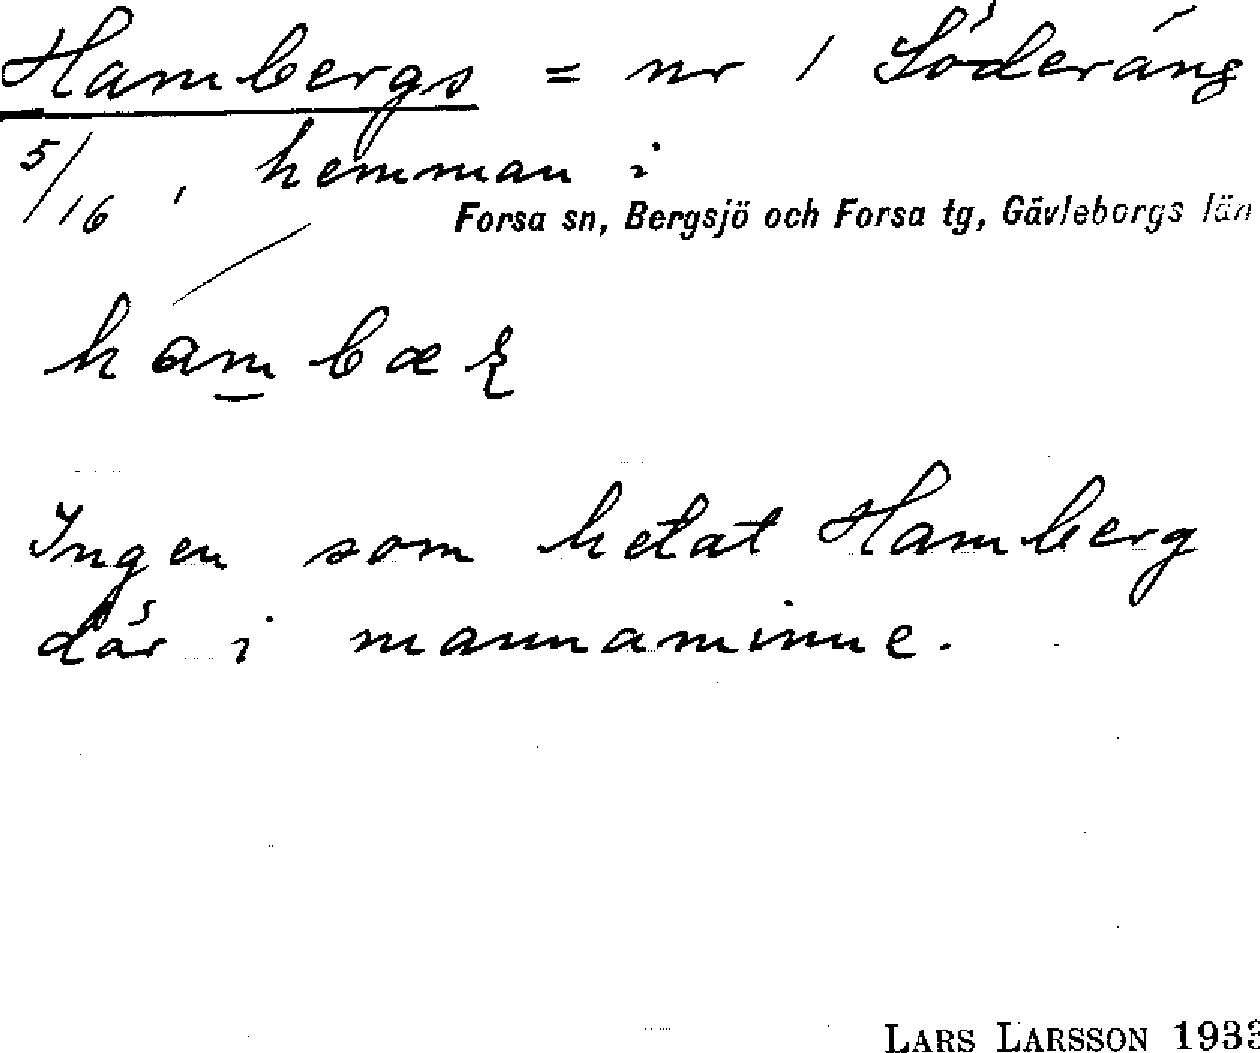 Hambergs = nr 1 Söderäng
5/16, hemman i
Forsa sn, Bergsjö och Forsa tg, Gävleborgs län
Ingen som hetat Hamberg
där i mannaminne.
LARS LARSSON 1933